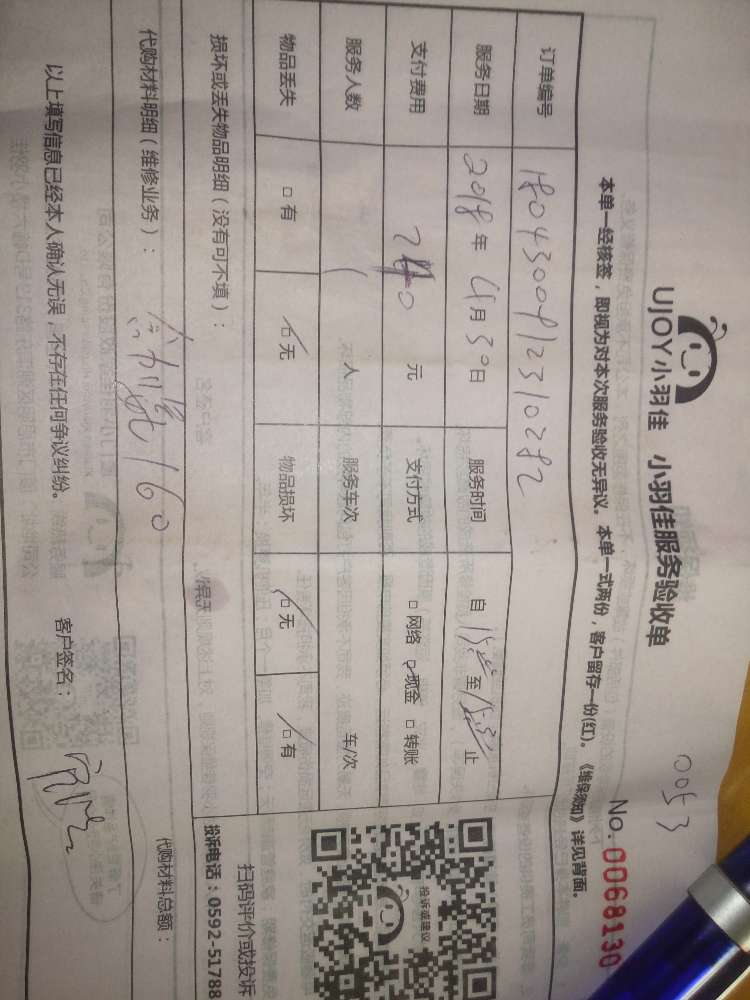 UJOY小羽佳 小羽佳服务验收单
0053
No: 0068130
本单一经核签，即视为对本次服务验收无异议。本单一式两份，客户留存一份(红)。《维保须知》详见背面。
订单编号 1804300912310282
服务日期 2018年 4月30日 服务时间 自 至 止
支付费用 240 元 支付方式 □网络 □现金 □转账
服务人数 1 人 服务车次 车/次
物品丢失 □有 □无 物品损坏 □无 □有
损坏或丢失物品明细（没有可不填）：
代购材料明细（维修业务）：
160
代购材料总额：
以上填写信息已经本人确认无误，不存在任何争议纠纷。 客户签名：
投诉或建议
扫码评价或投诉
投诉电话：0592-51788